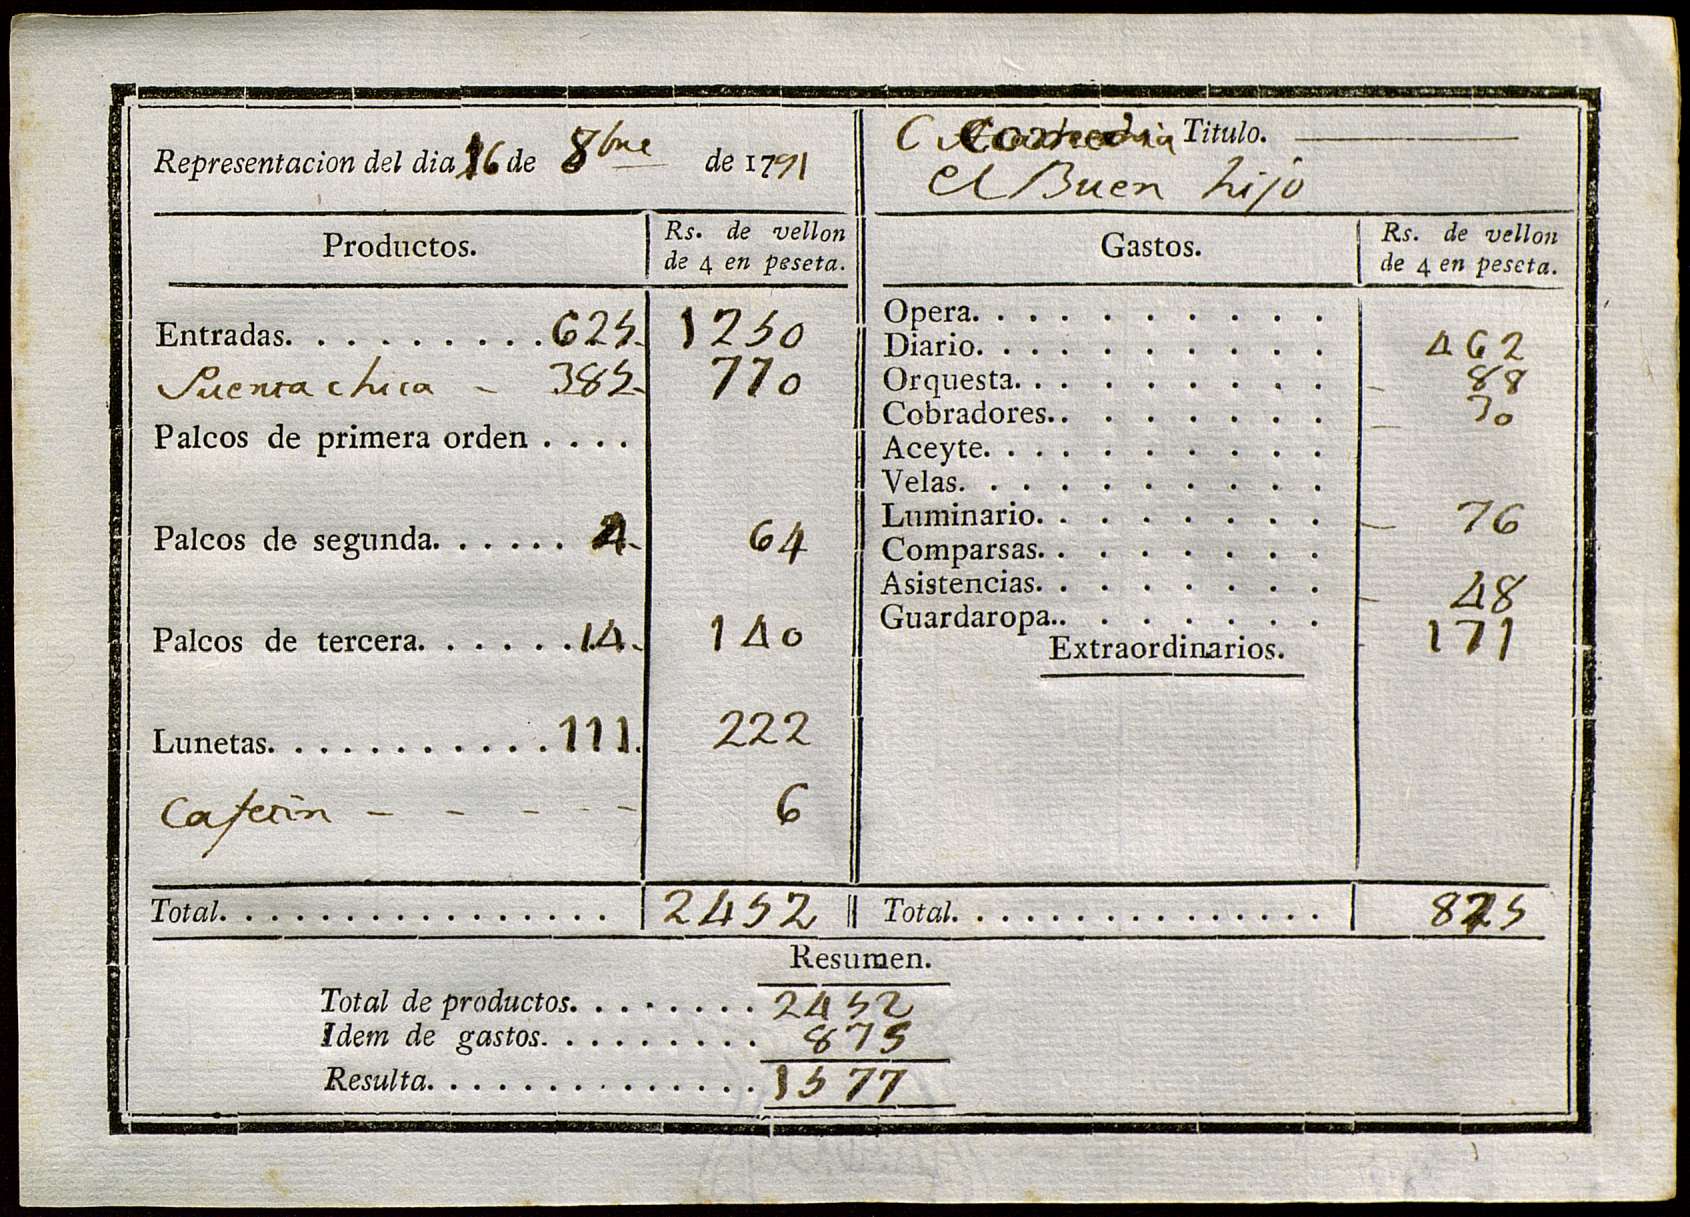 Representacion del dia 16 de 8bre de 1791
Comedia Titulo.
el Buen hijo
Productos.
Rs. de vellon
de 4 en peseta.
Gastos.
Rs. de vellon
de 4 en peseta.
Entradas. . . . . . . . . . 625. 1250
Puerta chica - 385. 770
Palcos de primera orden . . . .
Palcos de segunda. . . . . . 4. 64
Palcos de tercera. . . . . . . 14. 140
Lunetas. . . . . . . . . . . . 111. 222
Cafetin - - - - - 6
Total. . . . . . . . . . . . . . . . . 2452
Opera. . . . . . . . . .
Diario. . . . . . . . . . 462
Orquesta. . . . . . . . . - 88
Cobradores. . . . . . . . - 30
Aceyte. . . . . . . . . .
Velas. . . . . . . . . .
Luminario. . . . . . . . - 76
Comparsas. . . . . . . .
Asistencias. . . . . . . . - 48
Guardaropa. . . . . . . . 171
Extraordinarios.
Total. . . . . . . . . . . . . . . . 875
Resumen.
Total de productos. . . . . . . . 2452
Idem de gastos. . . . . . . . . 875
Resulta. . . . . . . . . . . . . . 1577